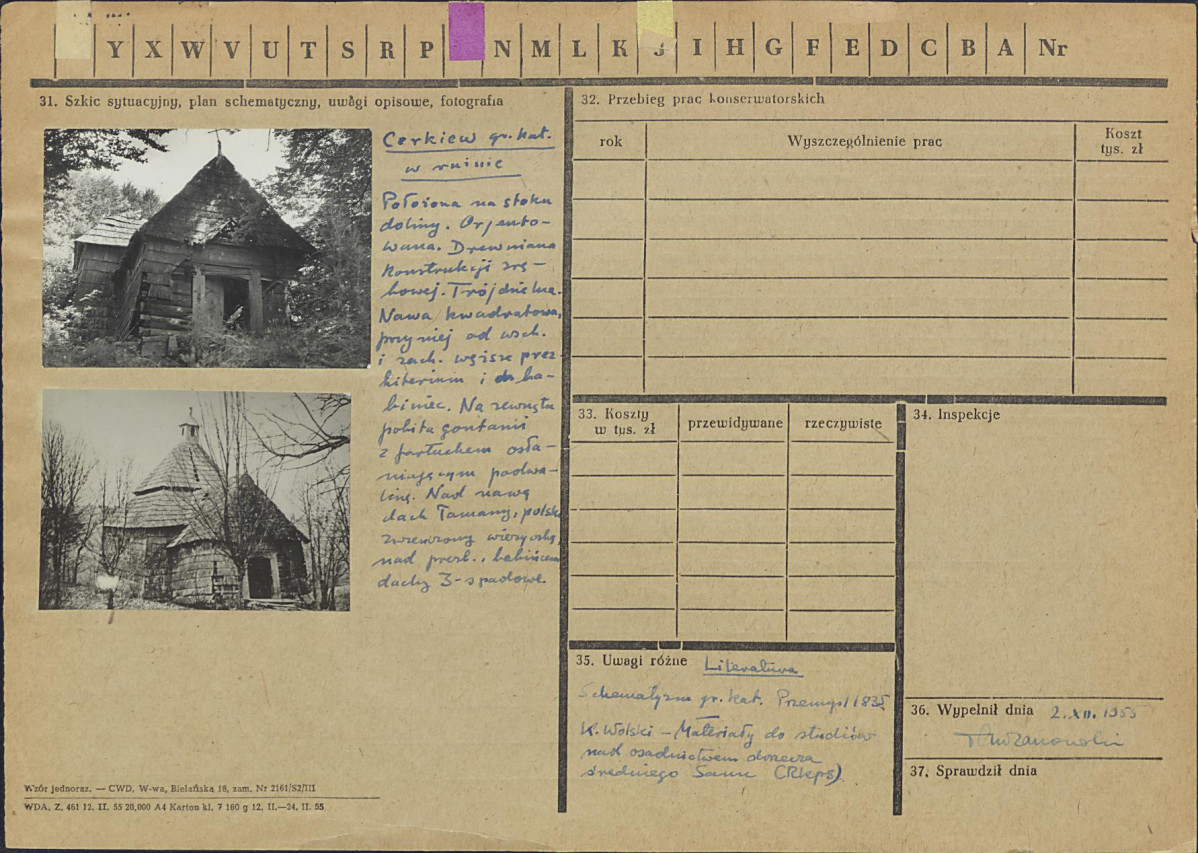 Y X W V U T S R P N M L K J I H G F E D C B A Nr
31. Szkic sytuacyjny, plan schematyczny, uwagi opisowe, fotografia
Cerkiew gr. kat.
w ruinie
Położona na stoku
doliny. Orjento-
wana. Drewniana
konstrukcji zrę-
bowej. Trójdzielna.
Nawa kwadratowa,
przy niej od wsch.
i zach. węższe prez
biterium i ba-
biniec. Na zewnątrz
pobita gontami
z fartuchem osła-
niającym podwa-
linę. Nad nawą
dach łamany, polski
zwieńczony wieżyczką,
nad prezb., babińcem
dachy 3-spadowe.
32. Przebieg prac konserwatorskich
rok
Wyszczególnienie prac
Koszt
tys. zł
33. Koszty
w tys. zł
przewidywane
rzeczywiste
34. Inspekcje
35. Uwagi różne Literatura
Schematyzm gr. kat. Przemyśl 1835
K. Wolski - Materiały do studiów
nad osadnictwem dorzecza
średniego Sanu
36. Wypełnił dnia 2.XII.1955
37. Sprawdził dnia
Wzór jednoraz. — CWD, W-wa, Bielańska 18, zam. Nr 2161/S2/III
WDA. Z. 461 12. II. 55 20,000 A4 Karton kl. 7 160 g 12. II.—24. II. 55